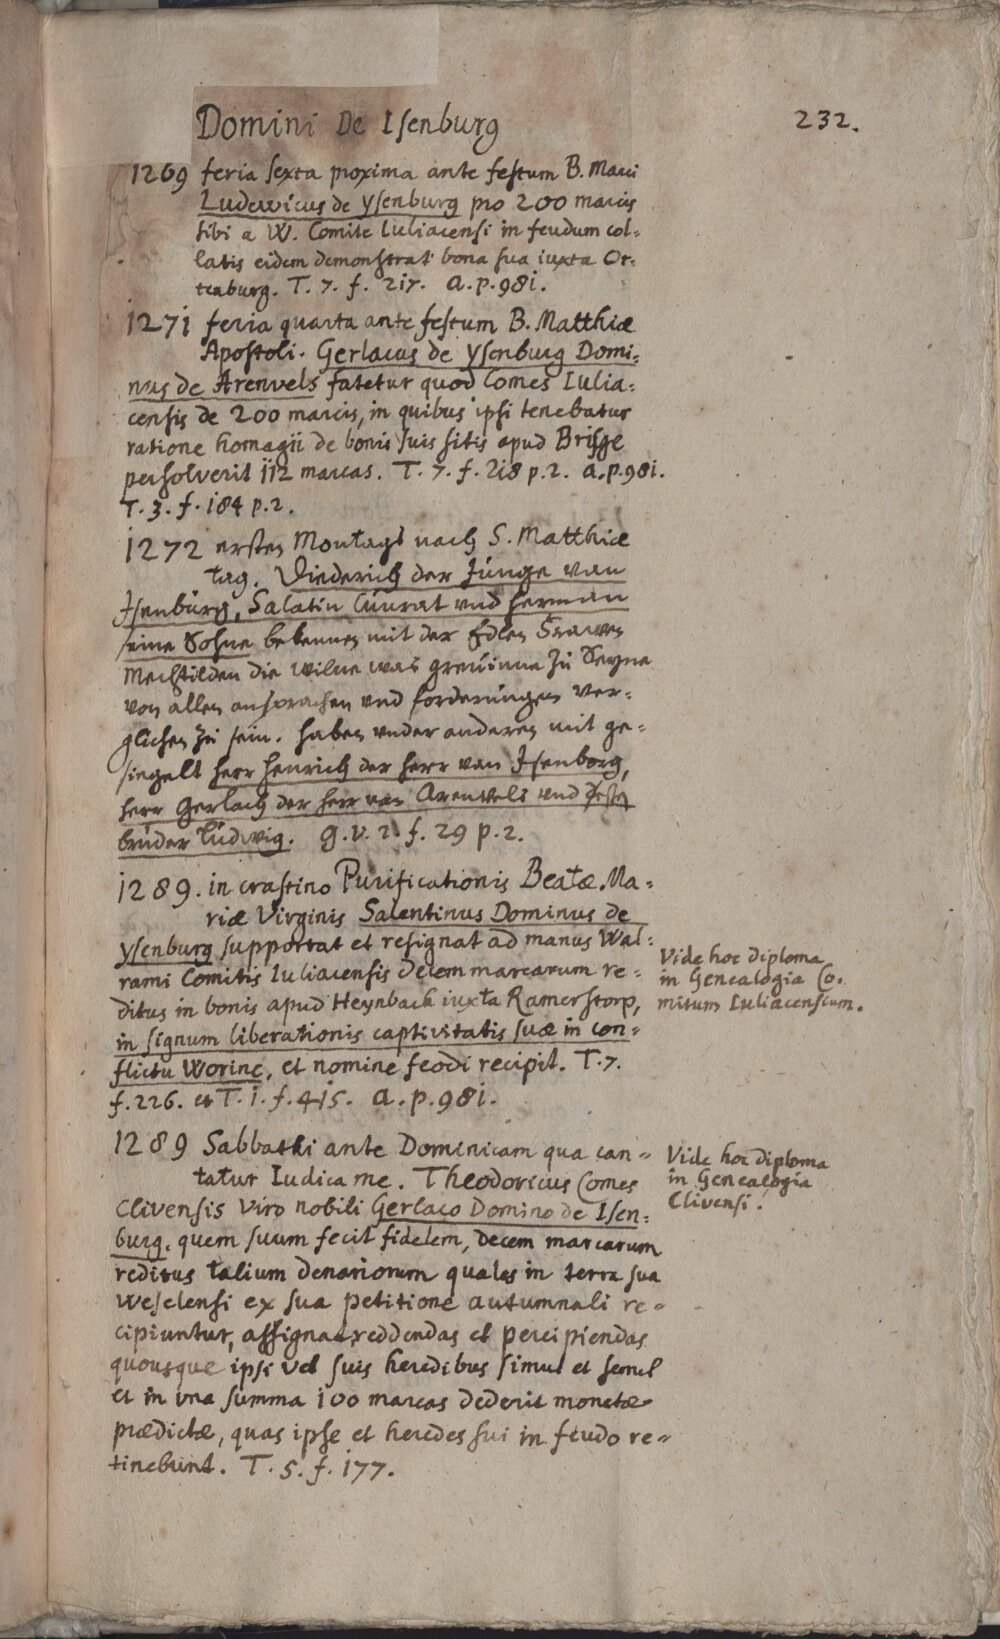 Domini De Isenburg
232.
1269 feria sexta proxima ante festum B. Marci
Ludewicus de Ysenburg pro 200 marcis
sibi a W. Comite Iuliacensi in feudum col-
latis eidem demonstrat bona sua iuxta Or-
tenburg. T. 7. f. 217. A. p. 981.
1271 feria quarta ante festum B. Matthiæ
Apostoli. Gerlacus de Ysenburg Domi-
nus de Arenvels fatetur quod Comes Iulia-
censis de 200 marcis, in quibus ipsi tenebatur
ratione homagii de bonis suis sitis apud Brisge
persolverit 112 marcas. T. 7. f. 218 p. 2. A. p. 981.
T. 3. f. 184 p. 2.
1272 ersten Montags nach S. Matthiæ
tag. Diederich der Junge van
Isenburg, Salatin Cunrat und Herman
seine Sohne bekennen mit der Edlen Frawen
Mechtilden die wilne was greuinne zu Seyne
von allen ansprachen und forderungen ver-
glichen zu sein. haben under anderen mit ge-
siegelt herr Henrich der herr van Isenborg,
herr Gerlach der herr van Arenvels und
bruder Ludwig. G. V. 2. f. 29 p. 2.
1289. in crastino Purificationis Beatæ Ma-
riæ Virginis Salentinus Dominus de
Ysenburg supportat et resignat ad manus Wal-
rami Comitis Iuliacensis decem marcarum re-
ditus in bonis apud Heynbach iuxta Ramerstorp,
in signum liberationis captivitatis suæ in con-
flictu Worinc, et nomine feodi recipit. T. 7.
f. 226. et T. 1. f. 415. A. p. 981.
Vide hoc diploma
in Genealogia Co-
mitum Iuliacensium.
1289 Sabbathi ante Dominicam qua can-
tatur Iudica me. Theodoricus Comes
Clivensis Viro nobili Gerlaco Domino de Isen-
burg. quem suum fecit fidelem, decem marcarum
reditus talium denariorum quales in terra sua
Weselensi ex sua petitione autumnali re-
cipiuntur, assignat, reddendas et percipiendas
quousque ipsi vel suis heredibus simul et semel
et in una summa 100 marcas dederit monetæ
prædictæ, quas ipse et heredes sui in feudo re-
tinebunt. T. 5. f. 177.
Vide hoc diploma
in Genealogia
Clivensi.